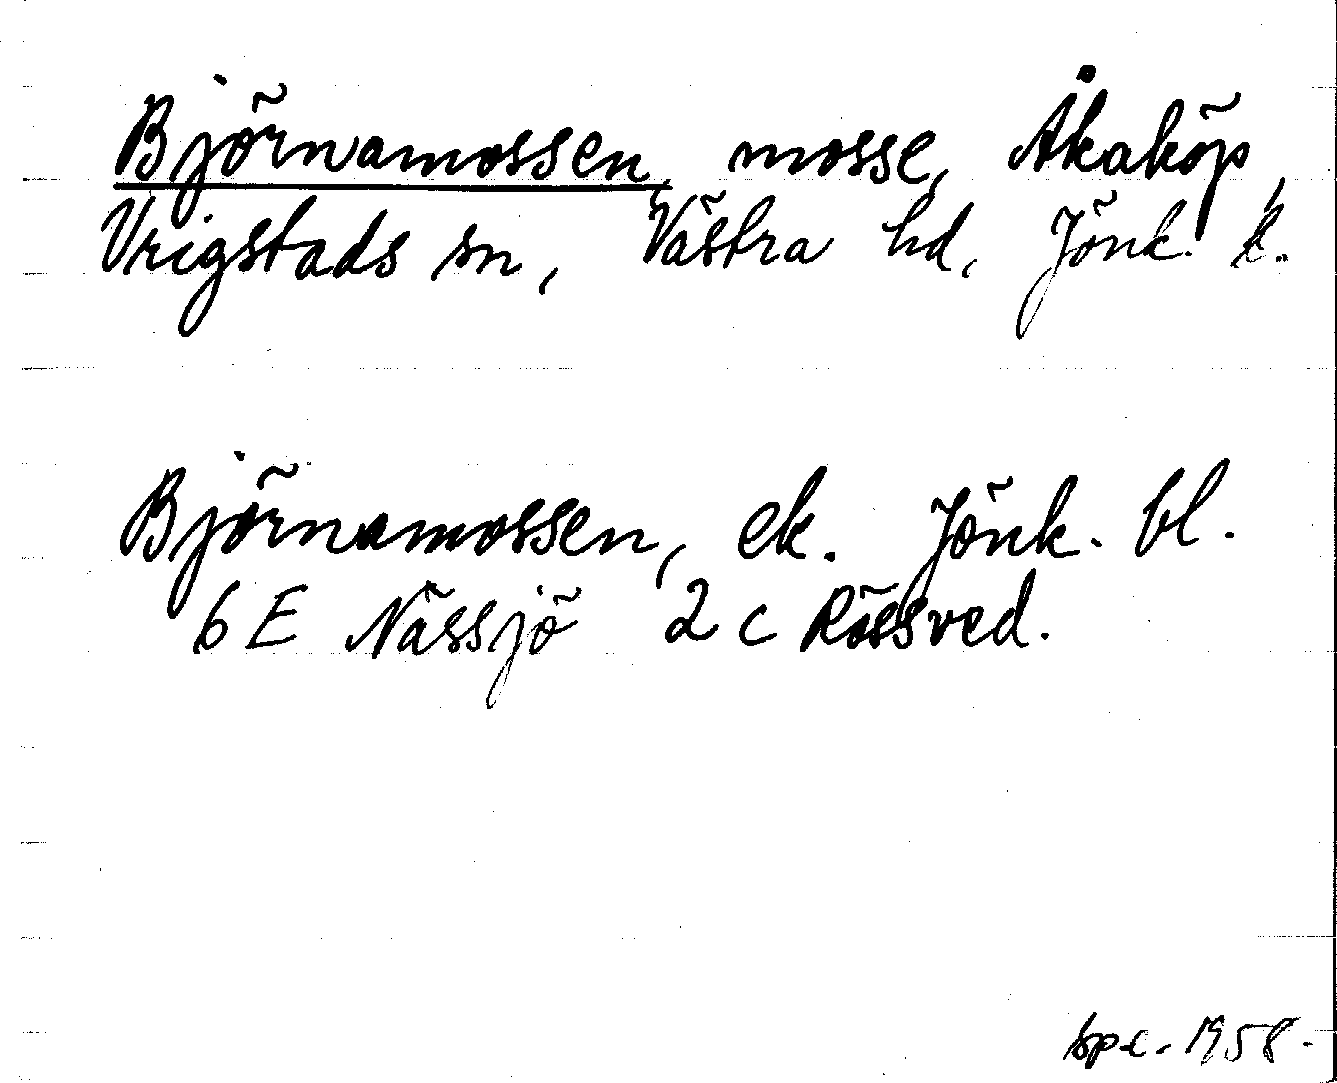 Björnamossen, mosse, Åkaköp,
Vrigstads sn, Västra hd, Jönk. l.
Björnamossen, ek. Jönk. bl.
6 E Nässjö 2 c Rössved.
1958.